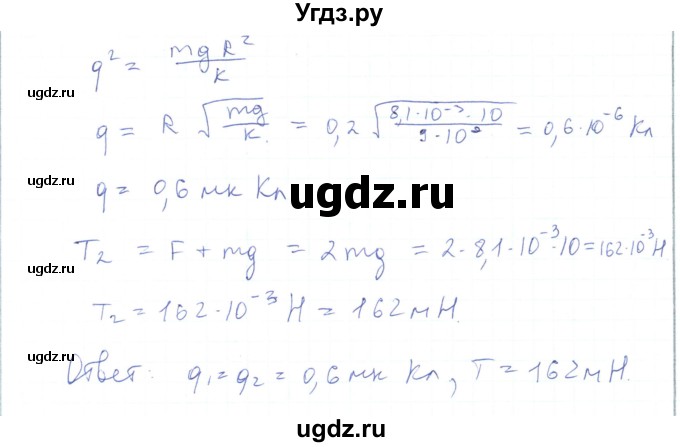 Угдз.ру
q² = mgR²/k
ugdz.ru
q = R √(mg/k) = 0,2 √(8,1·10⁻³·10/9·10⁹) = 0,6·10⁻⁶ Кл
ugdz.ru
q = 0,6 мк Кл
ugdz.ru
T₂ = F + mg = 2mg = 2·8,1·10⁻³·10 = 162·10⁻³ Н
ugdz.ru
T₂ = 162·10⁻³ Н = 162 мН.
ugdz.ru
Ответ: q₁ = q₂ = 0,6 мк Кл, T = 162 мН.
ugdz.ru